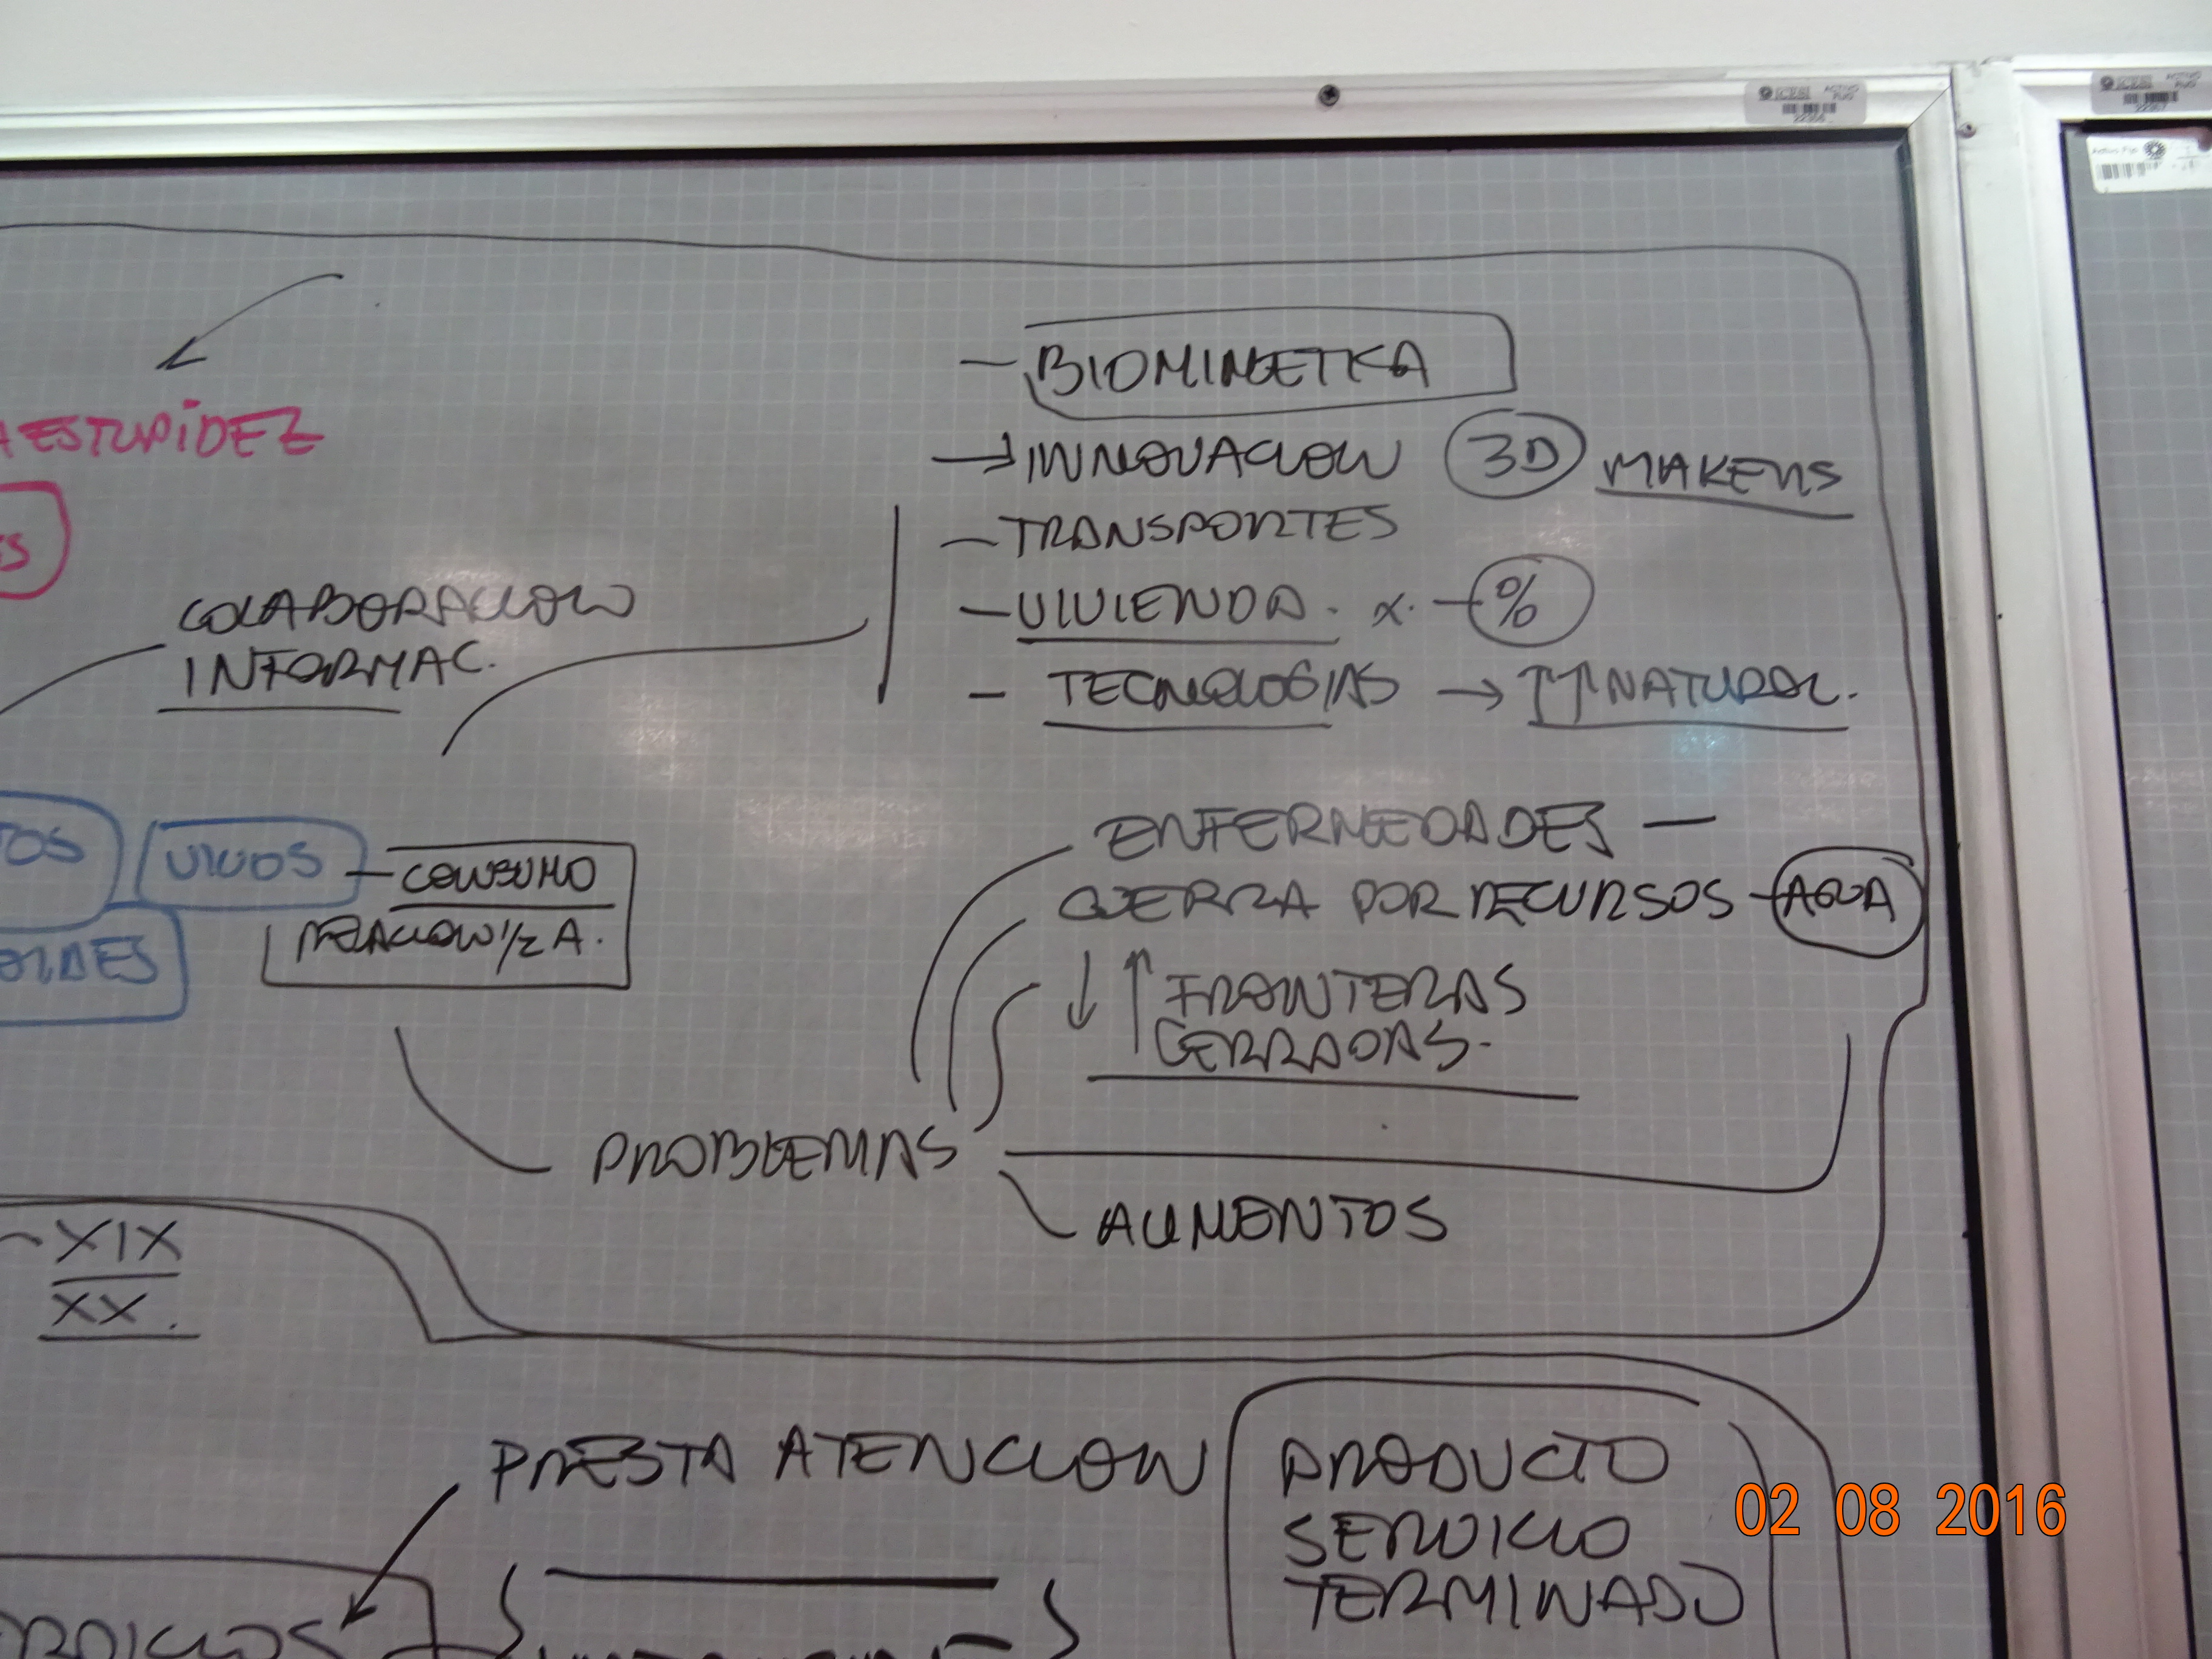 - BIOMIMETICA
→ INNOVACION 3D MAKERS
- TRANSPORTES
- VIVIENDA. x. - %
- TECNOLOGIAS → ↑↑ NATURAL.
ESTUPIDEZ
COLABORACION
INFORMAC.
VIVOS - CONSUMO
RELACION 1/2 A.
ENFERMEDADES -
GUERRA POR RECURSOS - AGUA
↓ ↑ FRONTERAS
CERRADAS.-
PROBLEMAS
ALIMENTOS
- XIX
XX.
PRESTA ATENCION
PRODUCTO
SERVICIO
TERMINADO
02 08 2016
ICESI